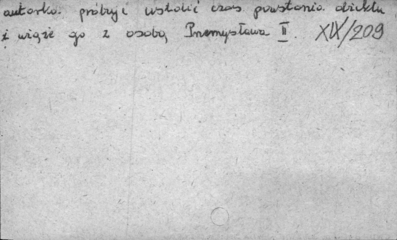 autorka próbuje ustalić czas powstania obiektu
i wiąże go z osobą Przemysława II. XIX/209